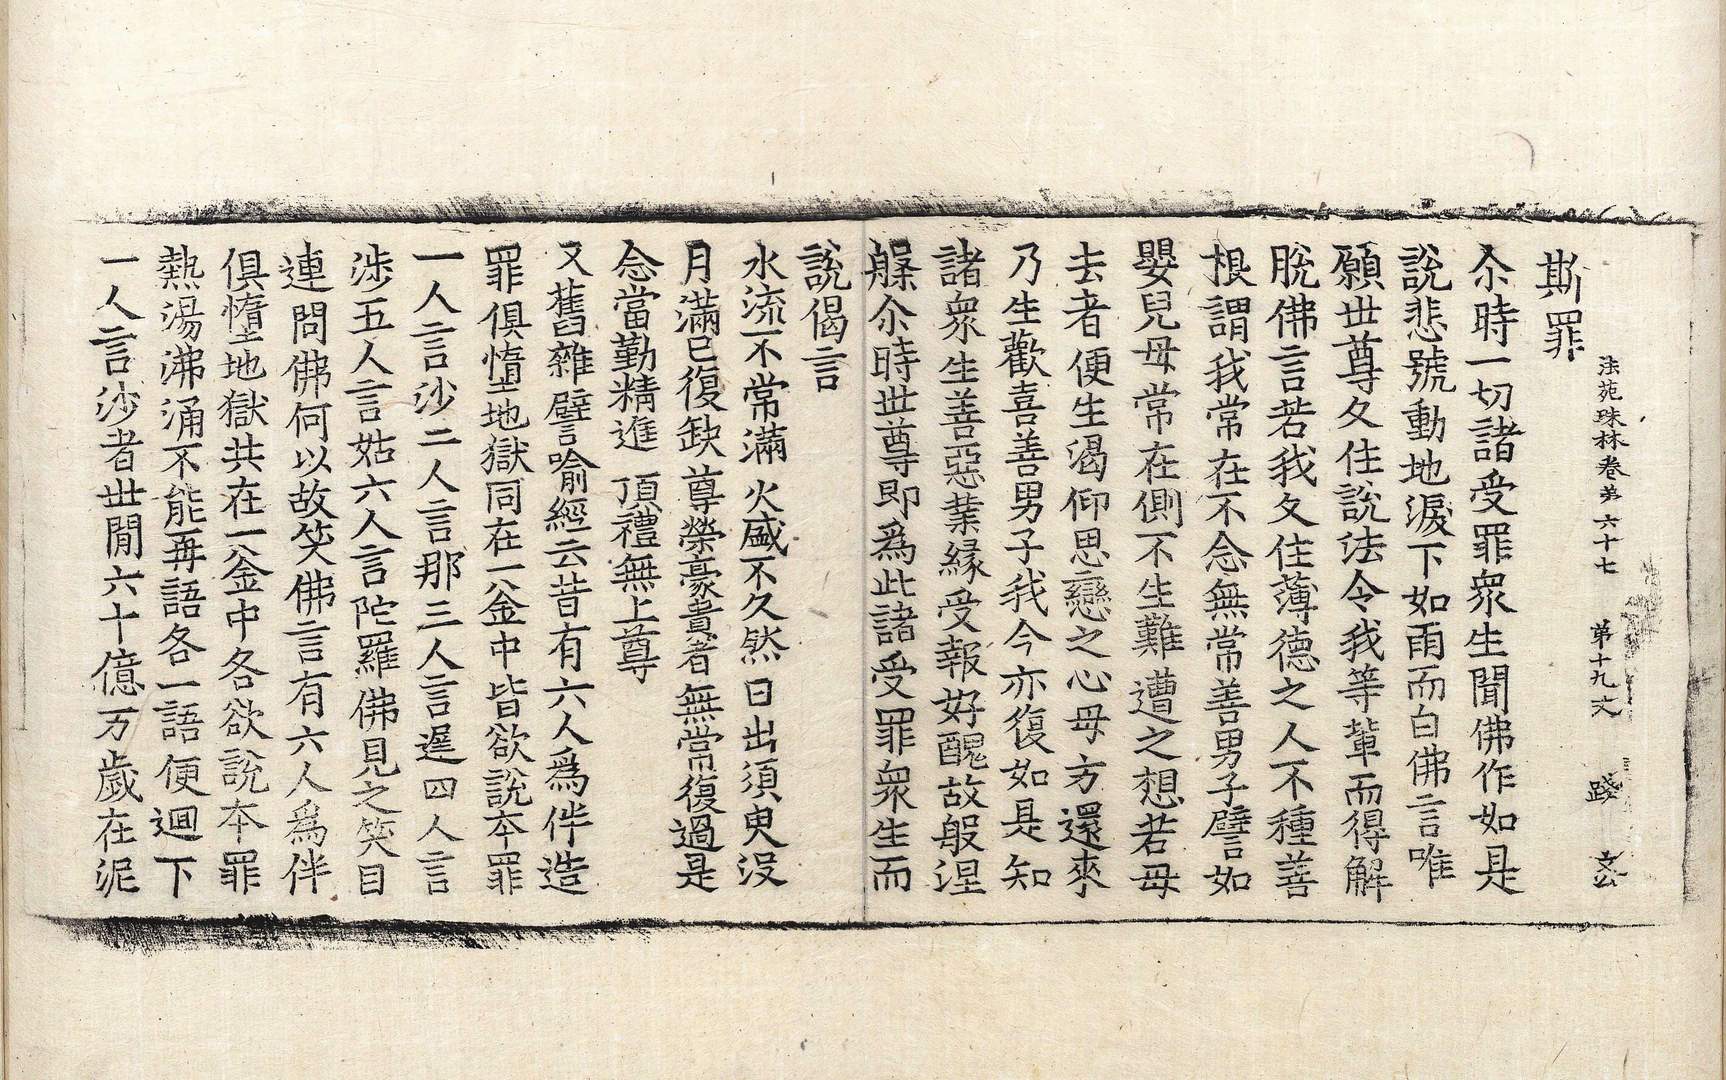 法苑珠林卷第六十七　第十九丈　踐　文公
斯罪
尒時一切諸受罪衆生聞佛作如是
說悲號動地淚下如雨而白佛言唯
願世尊久住說法令我等輩而得解
脫佛言若我久住薄德之人不種善
根謂我常在不念無常善男子譬如
嬰兒母常在側不生難遭之想若母
去者便生渴仰思戀之心母方還來
乃生歡喜善男子我今亦復如是知
諸衆生善惡業緣受報好醜故般涅
槃尒時世尊即爲此諸受罪衆生而
說偈言
水流不常滿　火盛不久然　日出須臾沒
月滿已復缺　尊榮豪貴者　無常復過是
念當勤精進　頂禮無上尊
又舊雜譬喻經云昔有六人爲伴造
罪俱墮地獄同在一釜中皆欲說本罪
一人言沙二人言那三人言遲四人言
涉五人言姑六人言陀羅佛見之笑目
連問佛何以故笑佛言有六人爲伴
俱墮地獄共在一釜中各欲說本罪
熱湯沸涌不能再語各一語便迴下
一人言沙者世間六十億万歲在泥